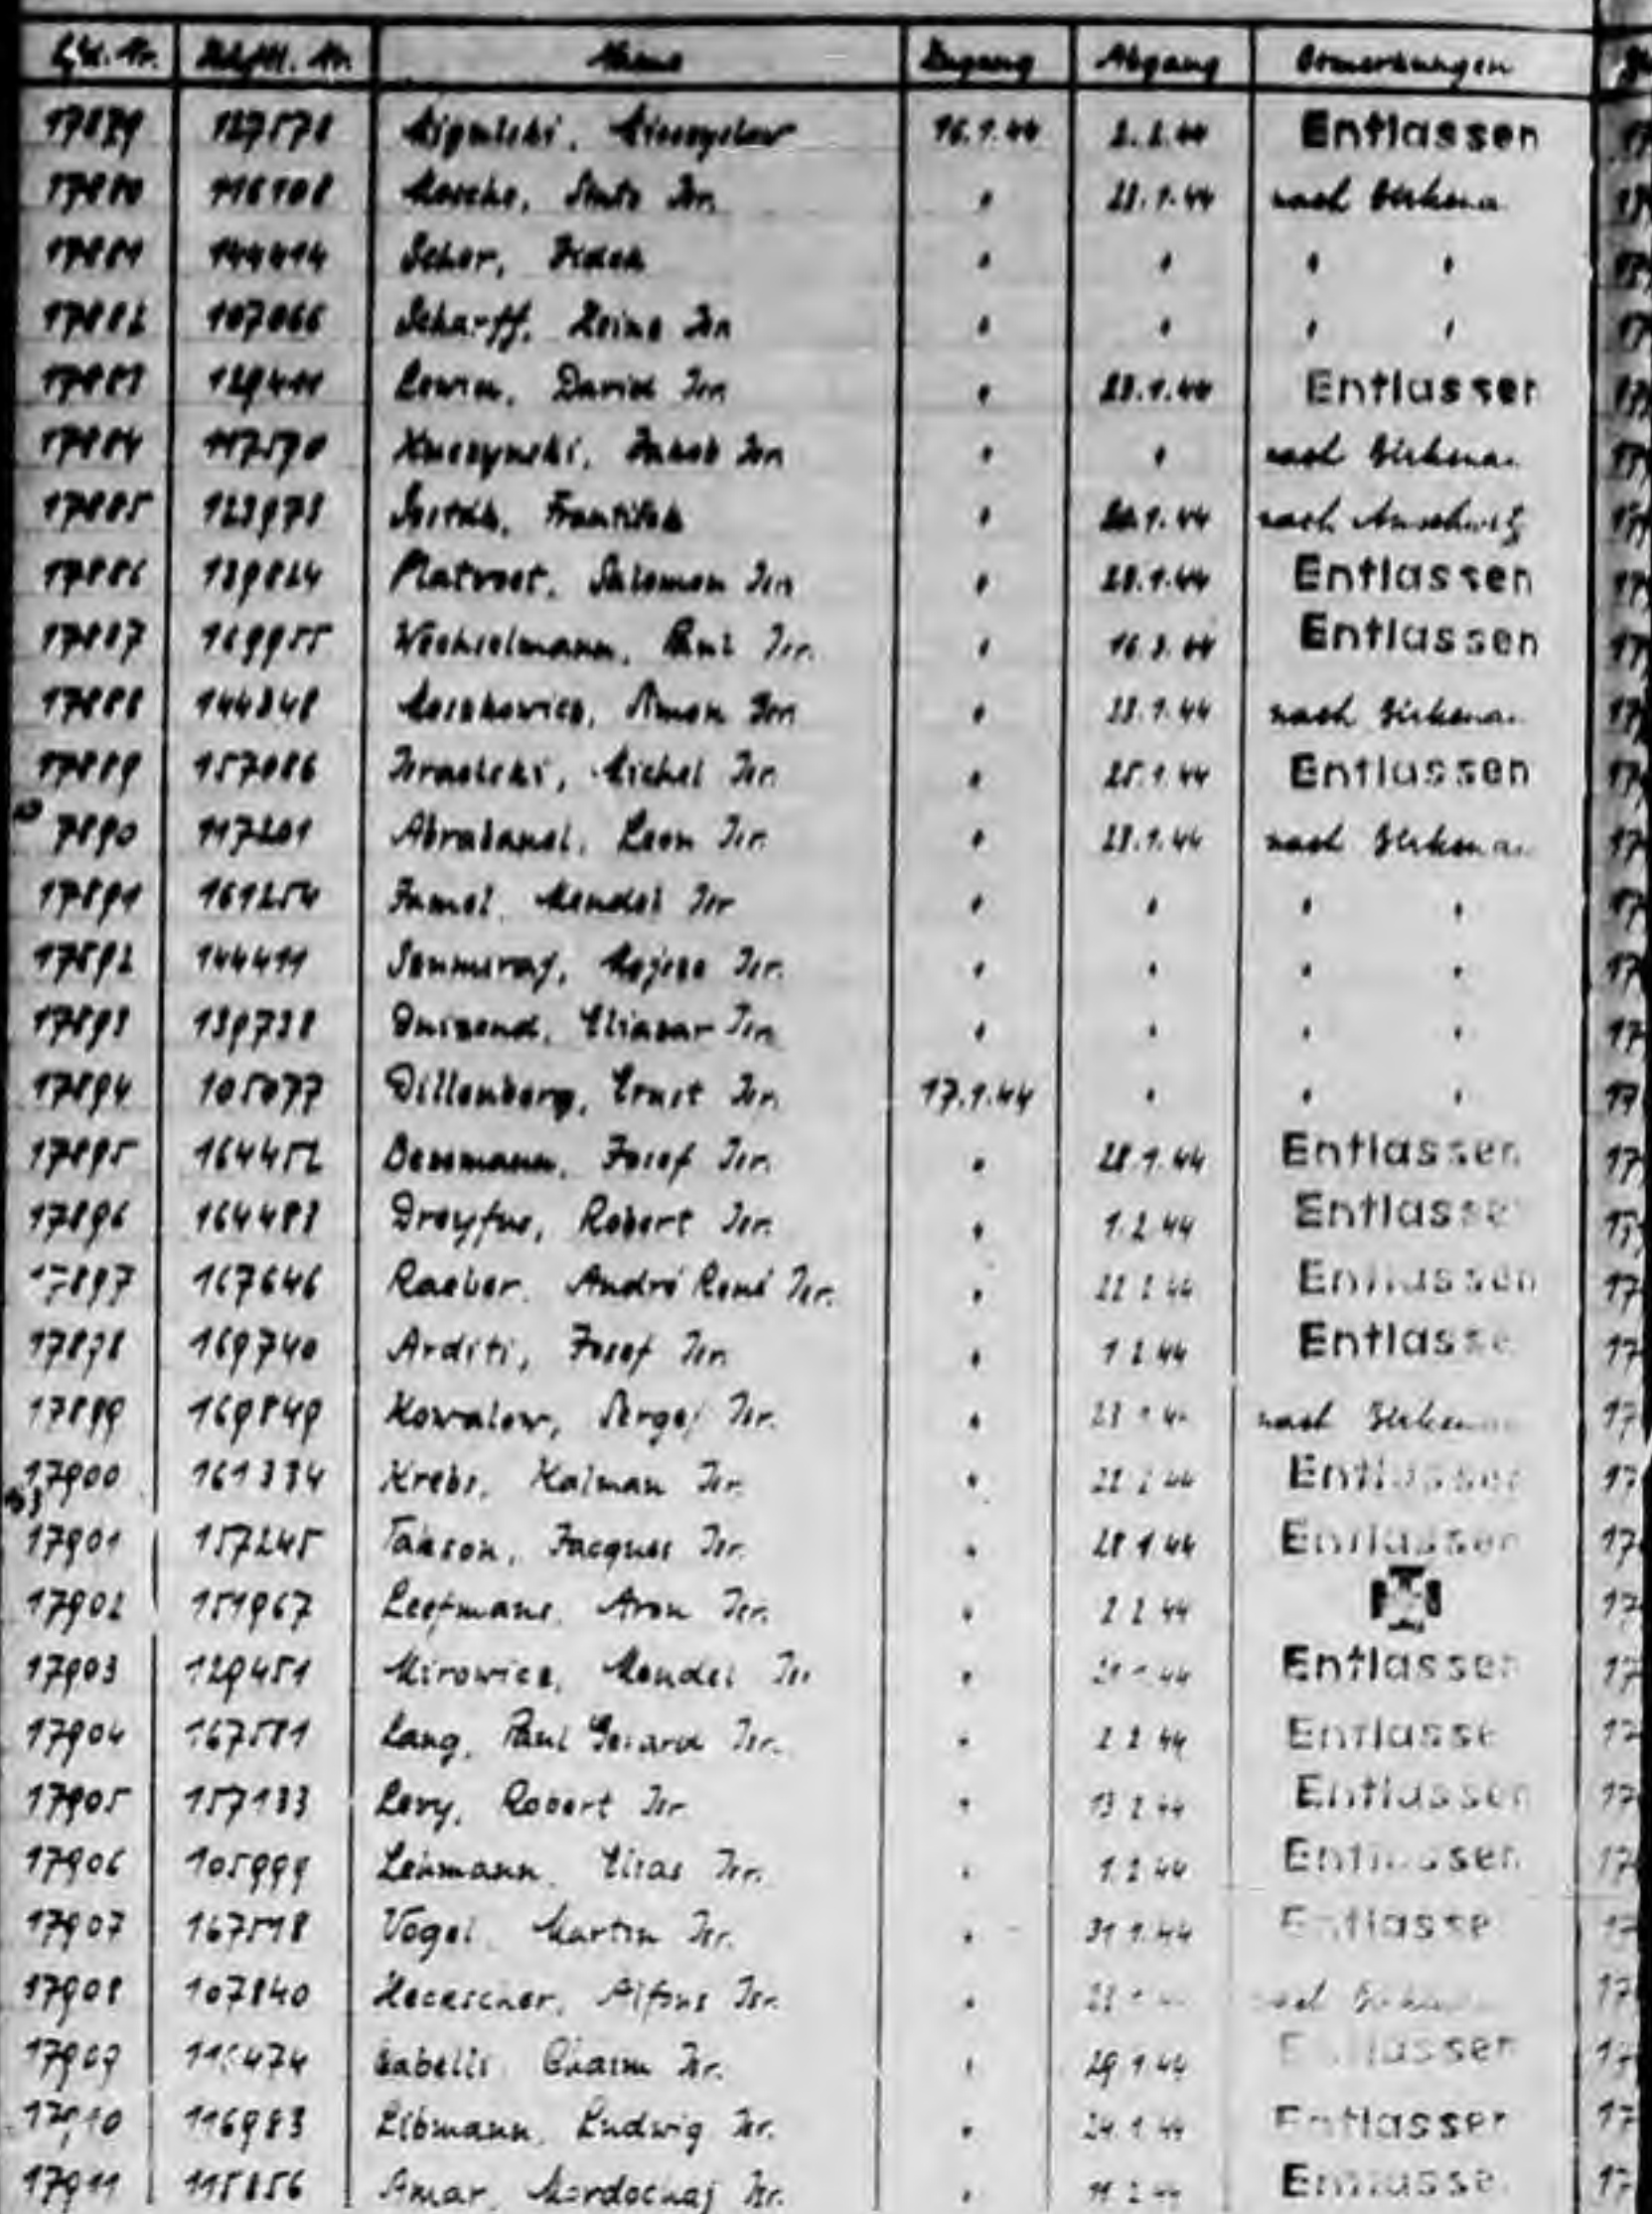 Lfd. Nr. Häftl. Nr. Name Zugang Abgang Bemerkungen
17879 127578 16.1.44 2.2.44 Entlassen
17880 116108 Isr. " 28.1.44 nach Birkenau
17881 144414 Schor, " " " "
17882 107066 Scharff, Heinz Isr. " " " "
17883 Lewin, David Isr. " 28.1.44 Entlassen
17884 117570 Kuczynski, Isr. " " nach Birkenau
17885 123973 František " nach Auschwitz
17886 139824 Platvoet, Salomon Isr. " 28.1.44 Entlassen
17887 169955 Wechselmann, Paul Isr. " 16.3.44 Entlassen
17888 144348 Moszkowicz, Simon Isr. " 28.1.44 nach Birkenau
17889 157086 Israelski, Michel Isr. " 25.1.44 Entlassen
17890 117201 Abrabanel, Leon Isr. " 28.1.44 nach Birkenau
17891 161254 Mendel Isr. " " " "
17892 144411 Isr. " " " "
17893 139738 Duizend, Eliazar Isr. " " " "
17894 105077 Dillenberg, Ernst Isr. 17.1.44 " " "
17895 164452 Josef Isr. " 28.1.44 Entlassen
17896 164483 Dreyfus, Robert Isr. " 1.2.44 Entlassen
17897 167646 Raeber, André René Isr. " 22.2.44 Entlassen
17898 169740 Arditi, Josef Isr. " 1.2.44 Entlassen
17899 169849 Kowalow, Sergej Isr. " nach Birkenau
17900 161334 Krebs, Kalman Isr. " 22.2.44 Entlassen
17901 157245 Jacques Isr. " 28.1.44 Entlassen
17902 151967 Leefmans, Aron Isr. " 2.2.44
17903 129451 Mirowicz, Mendel Isr. " Entlassen
17904 167581 Lang, Paul Gerard Isr. " 2.2.44 Entlassen
17905 157133 Levy, Robert Isr. " 13.2.44 Entlassen
17906 105999 Lehmann, Elias Isr. " 1.2.44 Entlassen
17907 167518 Vogel, Martin Isr. " 31.1.44 Entlassen
17908 107840 Heckscher, Alfons Isr. " nach Birkenau
17909 Chaim Isr. " 29.1.44 Entlassen
17910 116983 Libmann, Ludwig Isr. " 24.1.44 Entlassen
17911 115856 Amar, Mordochaj Isr. " 11.2.44 Entlassen